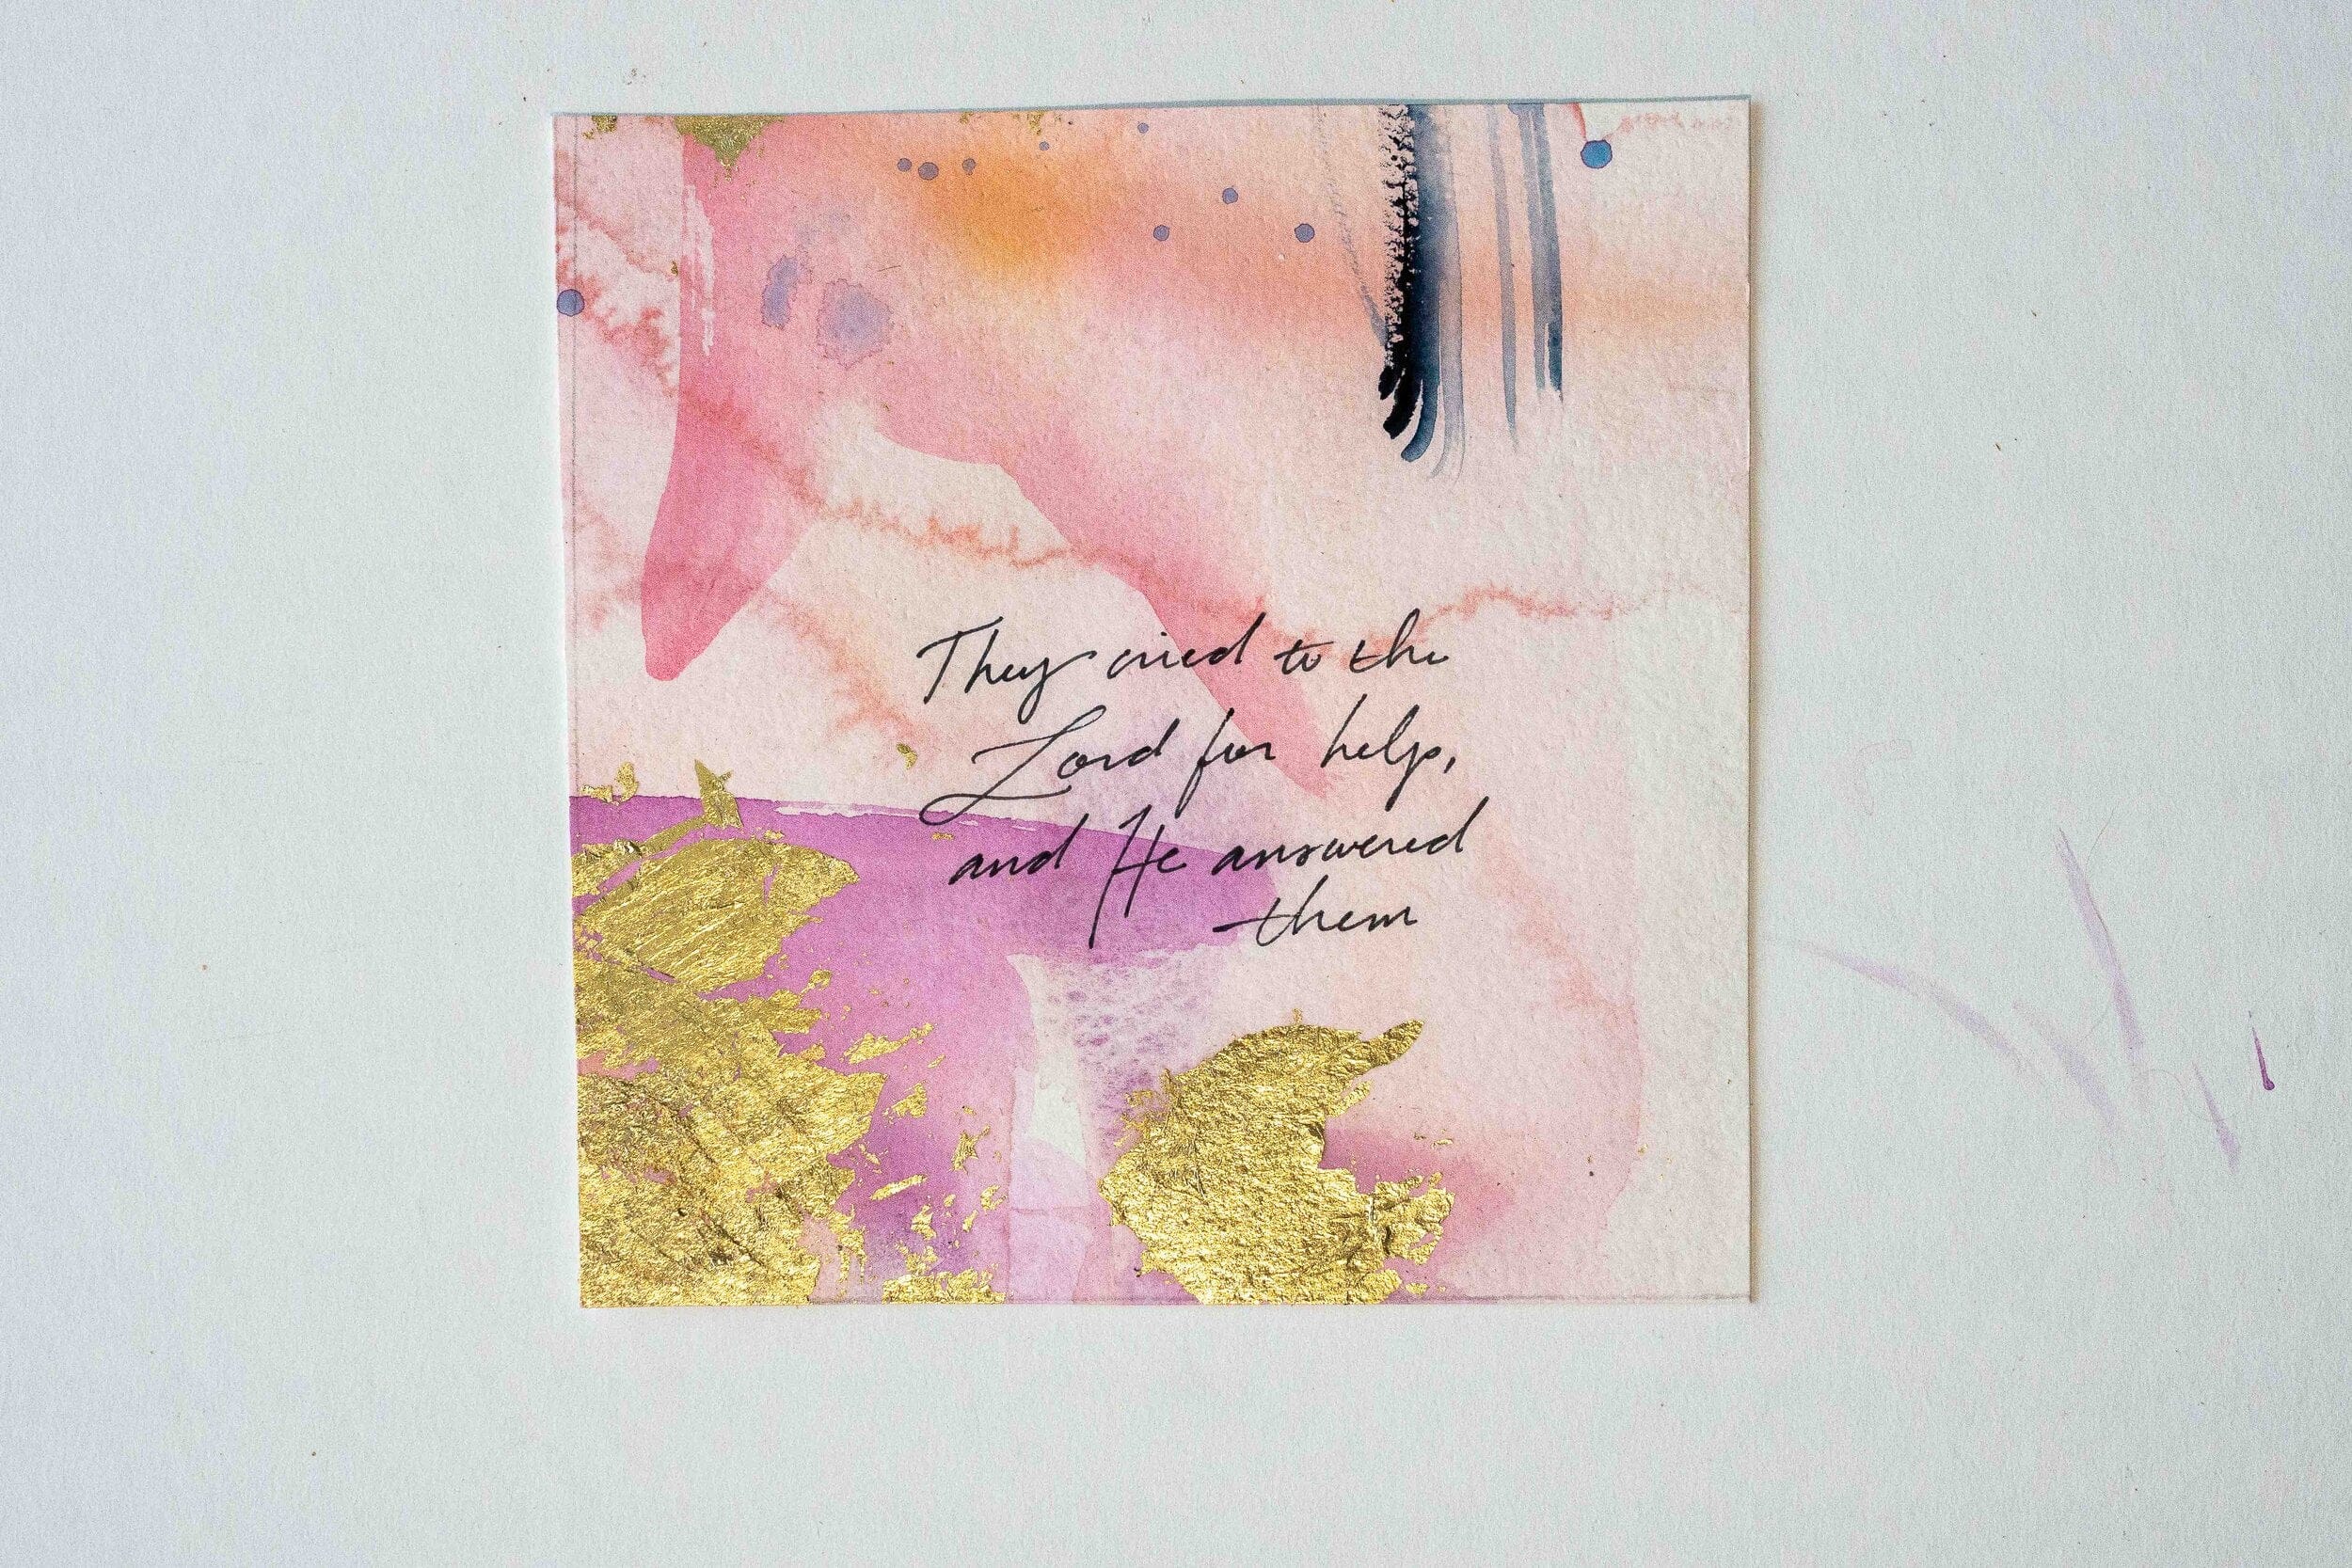 They cried to the
Lord for help,
and He answered
them